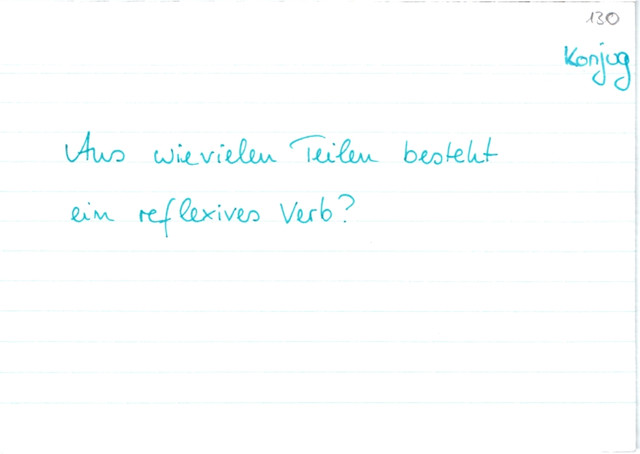 130
Konjug
Aus wievielen Teilen besteht
ein reflexives Verb?